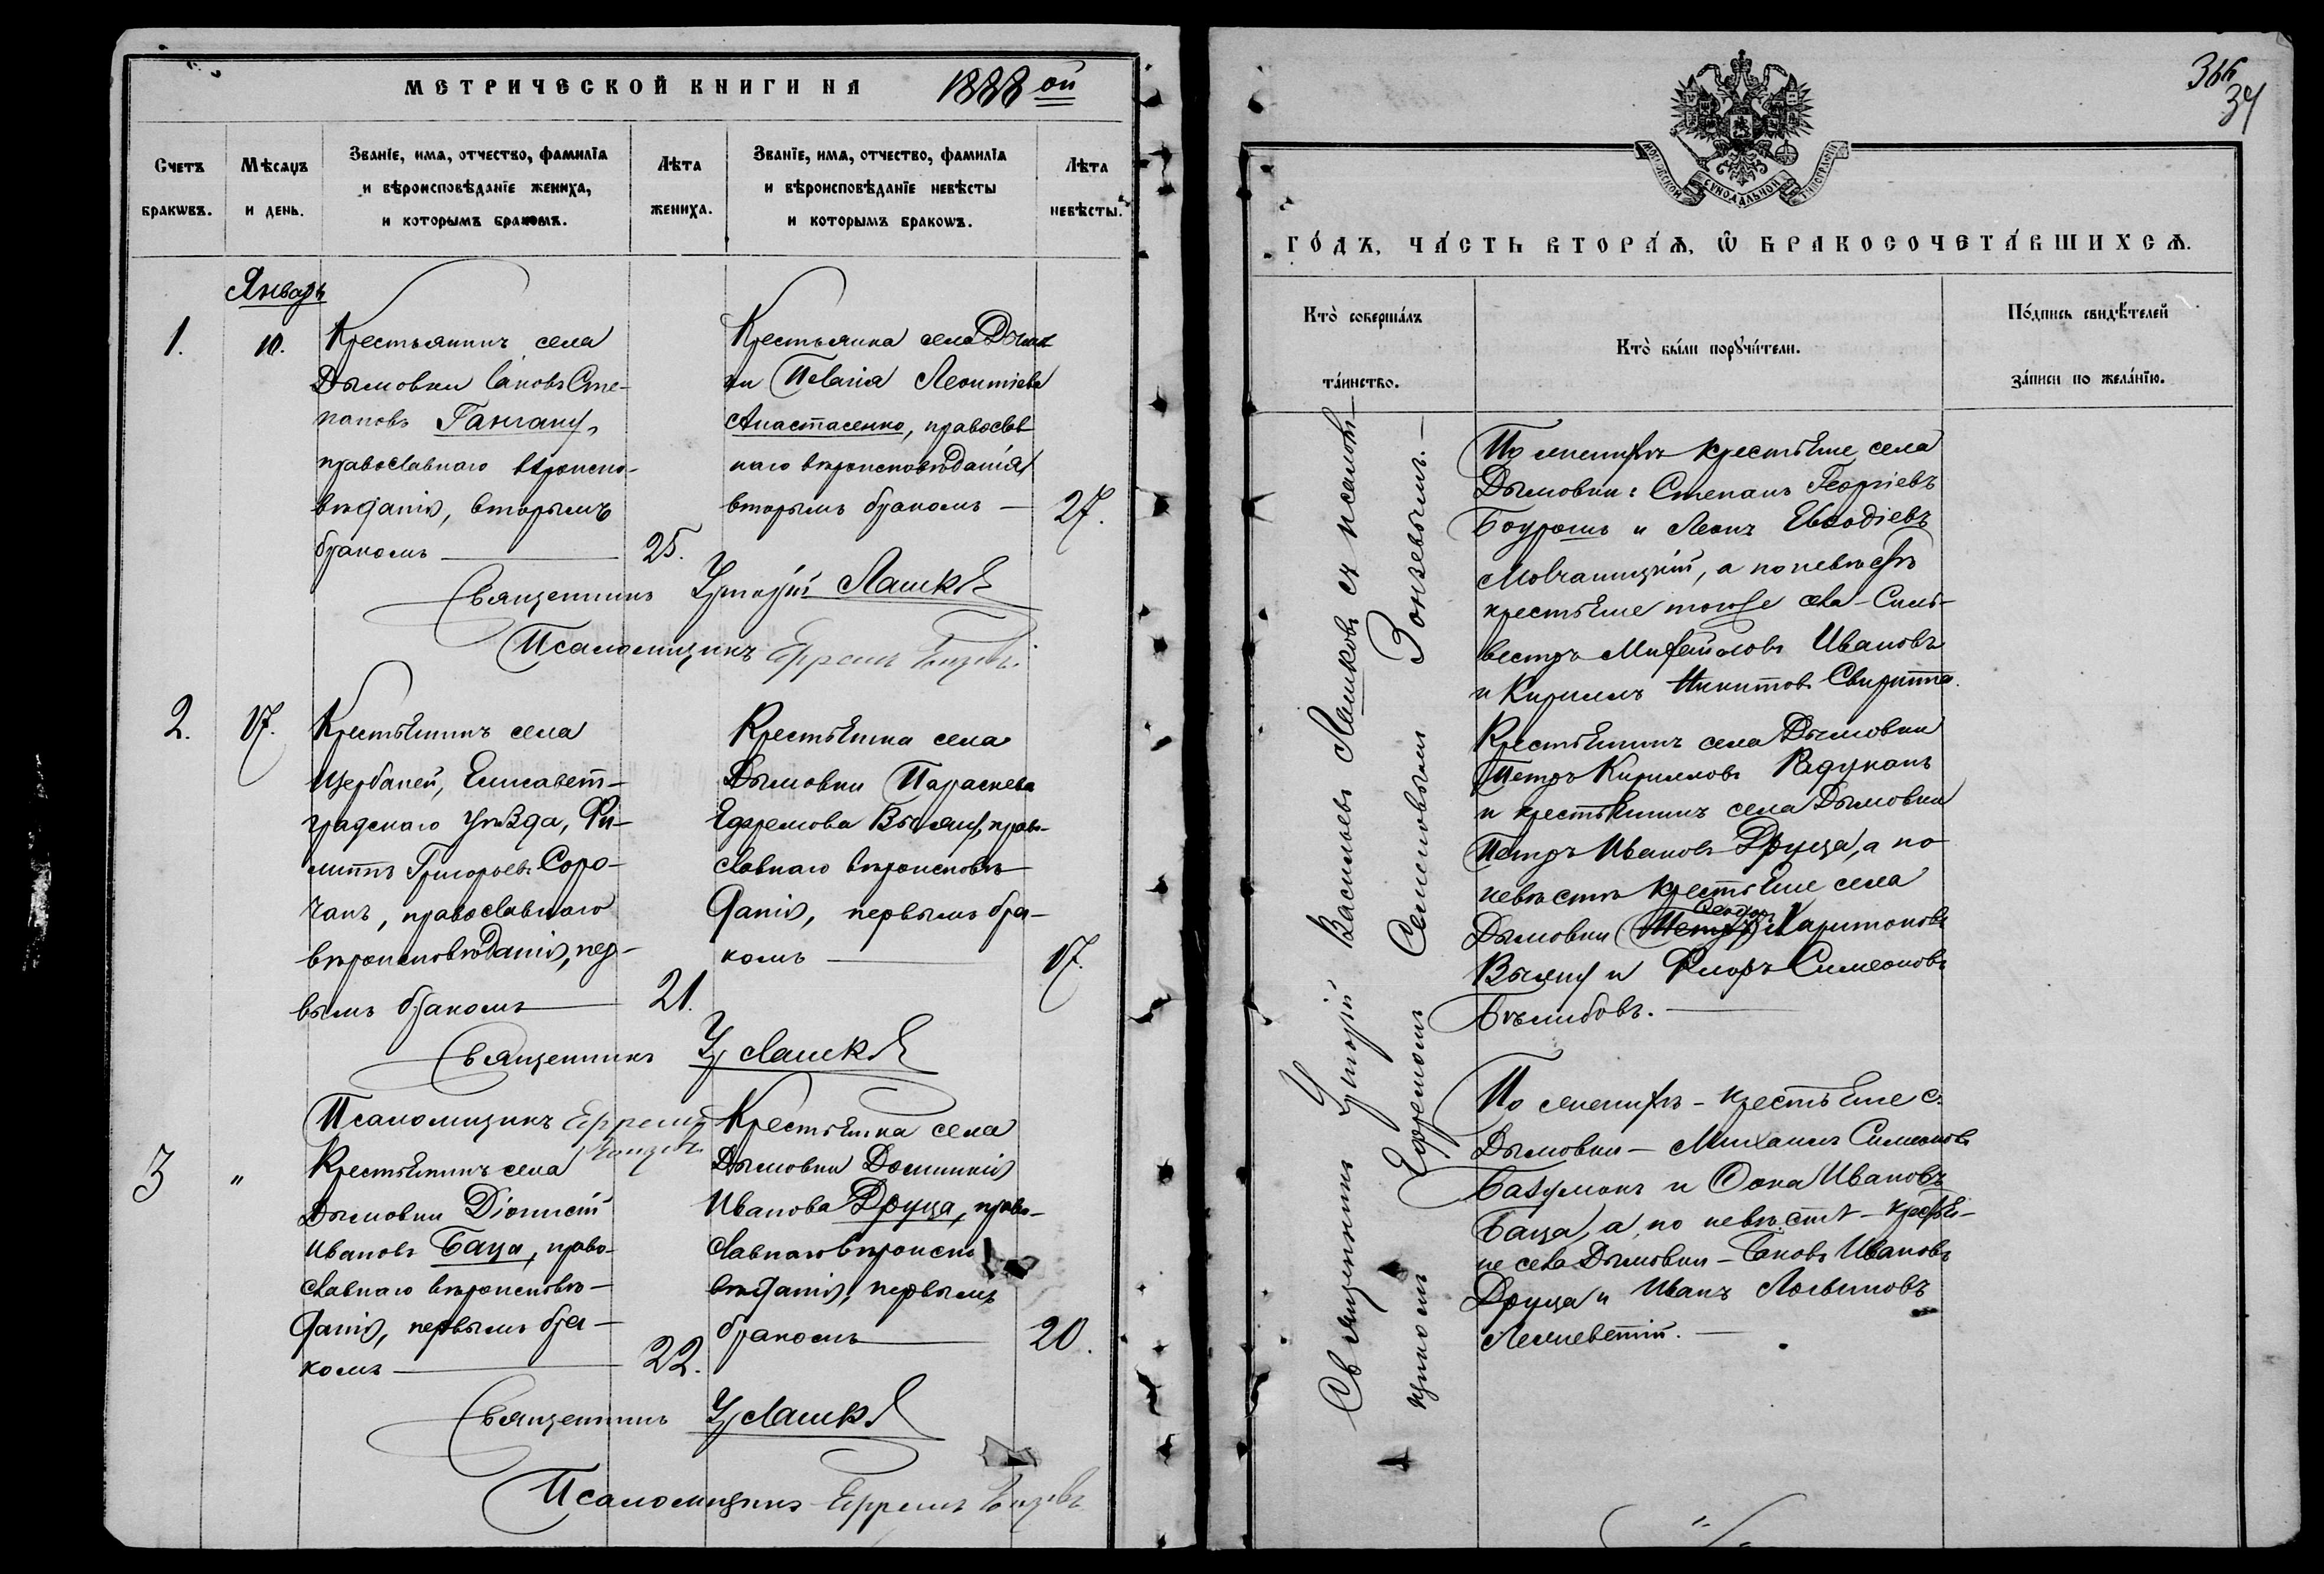 МЕТРИЧЕСКОЙ КНИГИ НА 1888 ой
Счетъ браковъ.
Мѣсяцъ и день.
Званїе, имя, отчество, фамилїя
и вѣроисповѣданїе жениха,
и которымъ бракомъ.
Лѣта
жениха.
Званїе, имя, отчество, фамилїя
и вѣроисповѣданїе невѣсты
и которымъ бракомъ.
Лѣта
невѣсты.
Январь
1.
10.
Крестьянинъ села
Дымовки Іаковъ Сте-
пановъ
православнаго вѣроиспо-
вѣданія, вторымъ
бракомъ
25.
Крестьянка села
ки Пелагія Леонтіева
Анастасенко, православ
наго вѣроисповѣданія
вторымъ бракомъ —
27.
Священникъ Григорій Лашковъ
Псаломщикъ Ефремъ
2.
17.
Крестьянинъ села
Щербаней, Елисавет-
градскаго уѣзда, Фи-
липпъ Григорьевъ Соро-
чанъ, православнаго
вѣроисповѣданія, пер-
вымъ бракомъ
21.
Крестьянка села
Дымовки Параскева
Ефремова право-
славнаго вѣроисповѣ-
данія, первымъ бра-
комъ
17.
Священникъ Гр Лашковъ
Псаломщикъ Ефремъ
3
"
Крестьянинъ села
Дымовки Діонисій
Ивановъ Баца, право-
славнаго вѣроисповѣ-
данія, первымъ бра-
комъ
22.
Крестьянка села
Дымовки Домникія
Иванова Друца, право-
славнаго вѣроиспо
вѣданія, первымъ
бракомъ
20.
Священникъ Гр Лашковъ
Псаломщикъ Ефремъ
34
МОСКОВСКОЙ СѴНОДАЛЬНОЙ ТИПОГРАФІИ
ГО́ДЪ, ЧА́СТЬ ВТОРА́Я, Ѿ БРАКОСОЧЕТА́ВШИХСЯ.
Кто̀ соверша́лъ
та́инство.
Кто̀ бы́ли порꙋчи́тели.
По́дпись свидѣ́телей
за́писи по жела́нїю.
Священникъ Григорій Васильевъ Лашковъ съ псалом-
щикомъ Ефремомъ Семеновымъ
По женихѣ крестьяне села
Дымовки: Степанъ Георгіевъ
и Леонъ Евсодіевъ
а по невѣстѣ
крестьяне тогоже села - Силь-
вестръ Михайловъ Ивановъ
и Кириллъ Никитовъ
Крестьянинъ села Дымовки
Петръ Кирилловъ Радуканъ
и крестьянинъ села Дымовки
Петръ Ивановъ Друца, а по
невѣстѣ крестьяне села
Дымовки Харитоновъ
и Флоръ Симеоновъ
По женихѣ - крестьяне с.
Дымовки - Михаилъ Симеоновъ
и Ѳома Ивановъ
Баца, а по невѣстѣ - крестья-
не села Дымовки - Іаковъ Ивановъ
Друца и Иванъ